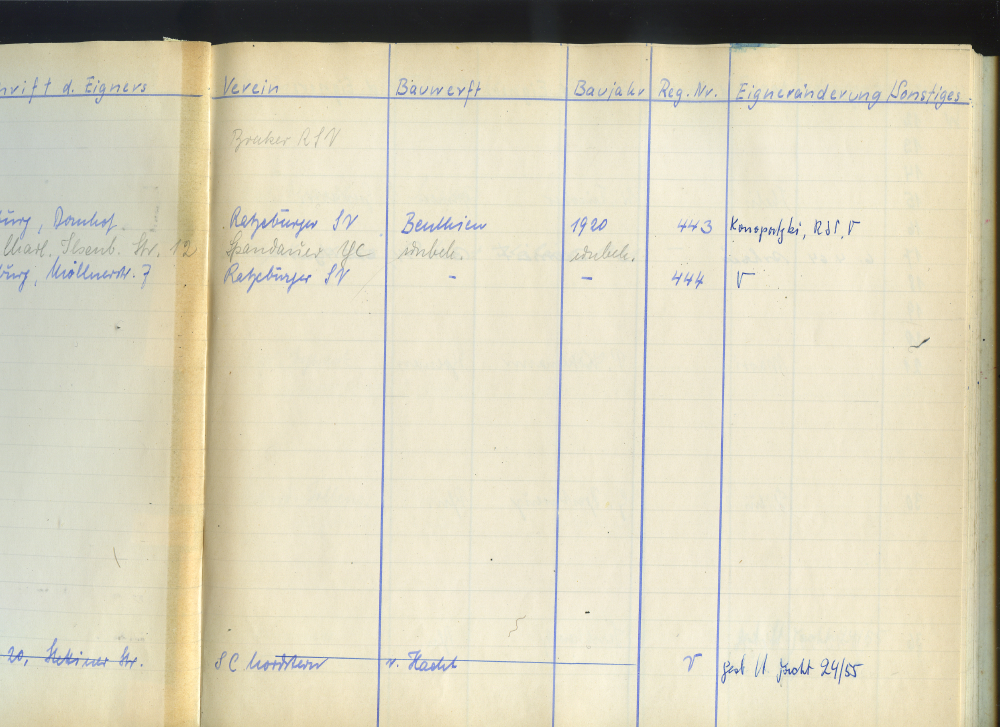 hrift d. Eigners Verein Bauwerft Baujahr Reg. Nr. Eigneränderung/Sonstiges
Braker RSV
burg, Domhof Ratzeburger SV Benthien 1920 443 Konopatzki, RSV, V
Charl. Str. 12 Spandauer YC unbek. unbek.
burg, Möllnerstr. 7 Ratzeburger SV - - 444 V
20, Stettiner Str. SC Nordstern v. Hacht V gest. lt. Yacht 24/55